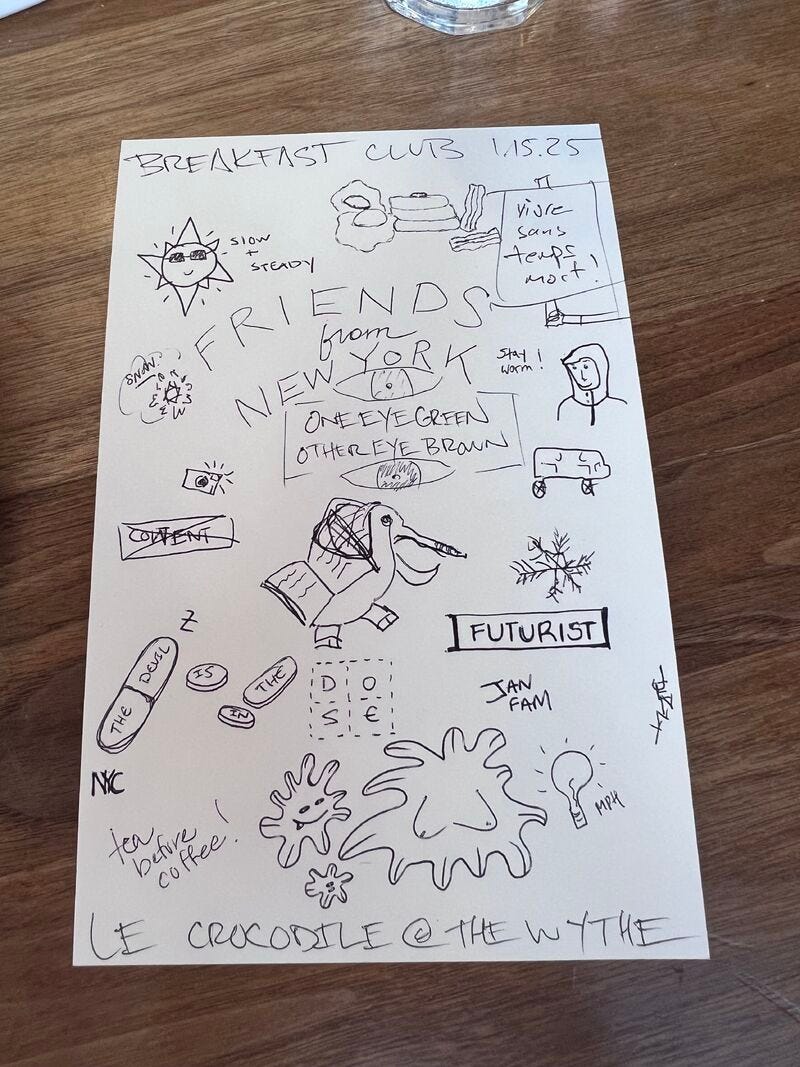 BREAKFAST CLUB 1.15.25
vivre
sans
temps
mort!
SLOW
+
STEADY
FRIENDS
from
NEW YORK
SNOW
Stay!
warm!
ONE EYE GREEN
OTHER EYE BROWN
CONTENT
FUTURIST
Z
THE DEVIL
IS
IN
THE
DO
S€
JAN
FAM
NYC
MPH
tea
before
coffee!
LE CROCODILE @ THE WYTHE